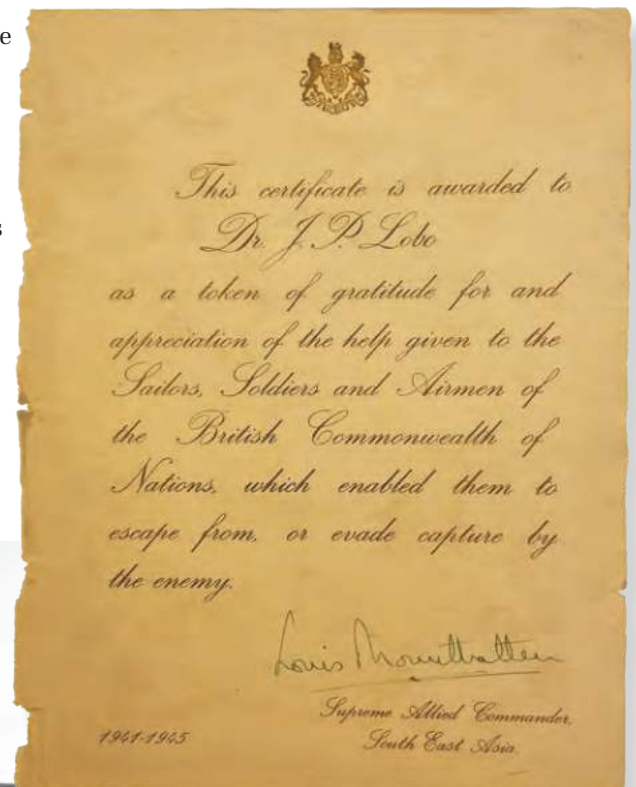 This certificate is awarded to
Dr. J. P. Lobo
as a token of gratitude for and
appreciation of the help given to the
Sailors, Soldiers and Airmen of
the British Commonwealth of
Nations, which enabled them to
escape from, or evade capture by
the enemy.
Louis Mountbatten
Supreme Allied Commander,
South East Asia.
1941-1945